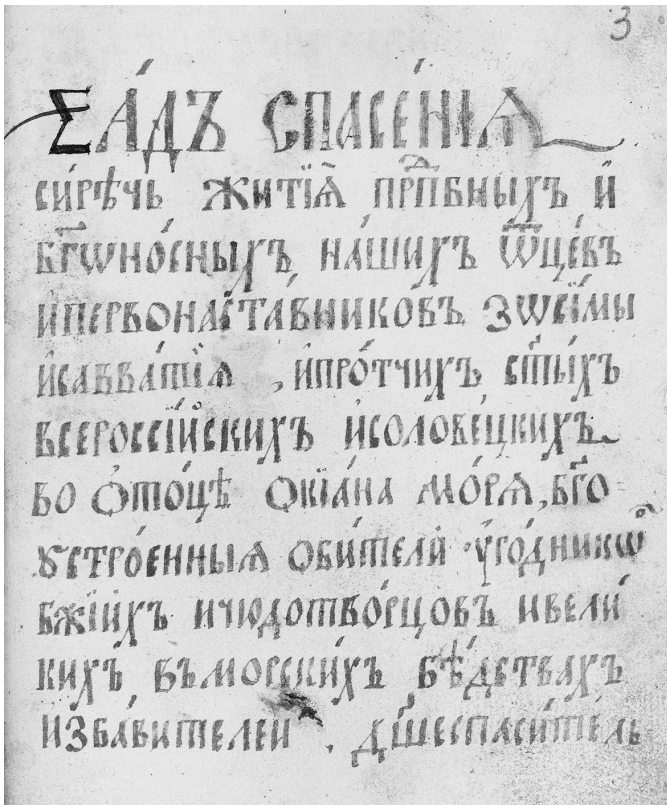 3
Са́дъ спасе́нїѧ
си́рѣчь житїѧ̑ прⷣпбныхъ и҆
бг҃ѡно́сныхъ на́шихъ ѿц҃е́въ
и҆первонаста́вниковъ зѡсі́мы
и҆савва́тїѧ , и҆про́тчихъ ст҃ы́хъ
всероссі́йскихъ и҆солове́цкихъ
во ѻ҆то́цѣ ѻ҆кїа́на мо́рѧ, бг҃о
ᲂу҆стро́енныѧ ѻ҆би́тели ᲂу҆го́дникѡⷡ
бж҃їихъ и чюдотво́рцовъ и вели́
кихъ въ морски́хъ бѣ́дствахъ
избави́телеи , дш҃еспаси́тель